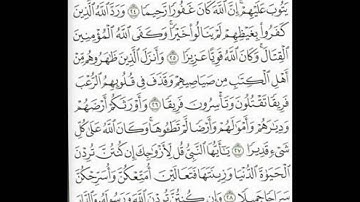 يَتُوبَ عَلَيْهِمْ إِنَّ ٱللَّهَ كَانَ غَفُورًا رَّحِيمًا ٢٤ وَرَدَّ ٱللَّهُ ٱلَّذِينَ
كَفَرُوا۟ بِغَيْظِهِمْ لَمْ يَنَالُوا۟ خَيْرًا وَكَفَى ٱللَّهُ ٱلْمُؤْمِنِينَ
ٱلْقِتَالَ وَكَانَ ٱللَّهُ قَوِيًّا عَزِيزًا ٢٥ وَأَنزَلَ ٱلَّذِينَ ظَٰهَرُوهُم مِّنْ
أَهْلِ ٱلْكِتَٰبِ مِن صَيَاصِيهِمْ وَقَذَفَ فِى قُلُوبِهِمُ ٱلرُّعْبَ
فَرِيقًا تَقْتُلُونَ وَتَأْسِرُونَ فَرِيقًا ٢٦ وَأَوْرَثَكُمْ أَرْضَهُمْ
وَدِيَٰرَهُمْ وَأَمْوَٰلَهُمْ وَأَرْضًا لَّمْ تَطَـُٔوهَا وَكَانَ ٱللَّهُ عَلَىٰ كُلِّ
شَىْءٍ قَدِيرًا ٢٧ يَٰٓأَيُّهَا ٱلنَّبِىُّ قُل لِّأَزْوَٰجِكَ إِن كُنتُنَّ تُرِدْنَ
ٱلْحَيَوٰةَ ٱلدُّنْيَا وَزِينَتَهَا فَتَعَالَيْنَ أُمَتِّعْكُنَّ وَأُسَرِّحْكُنَّ
سَرَاحًا جَمِيلًا ٢٨ وَإِن كُنتُنَّ تُرِدْنَ ٱللَّهَ وَرَسُولَهُۥ وَٱلدَّارَ